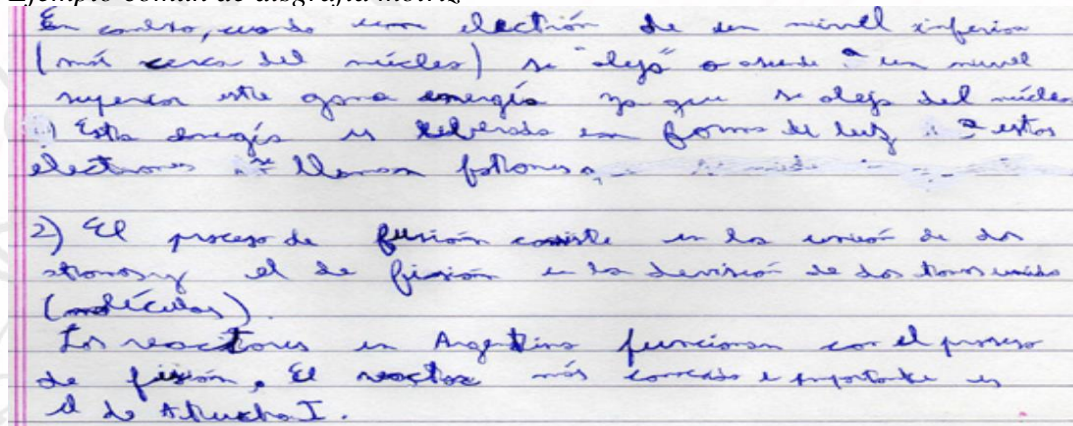 Ejemplo común de disgrafía motriz
En cambio, cuando un electrón de un nivel inferior
(má cerca del núcleo) se "aleja" o asciende a un nivel
superior este gana energía ya que se aleja del núcleo
Esta energía es liberada en forma de luz a estos
electrones se llaman fotones.
2) El proceso de fusión consiste en la unión de dos
atomos y el de fisión en la devisión de dos tomos unidos
(moléculas).
Los reactores en Argentina funcionan con el proceso
de fisión. El reactor más conocido e importante es
el de Atucha I.